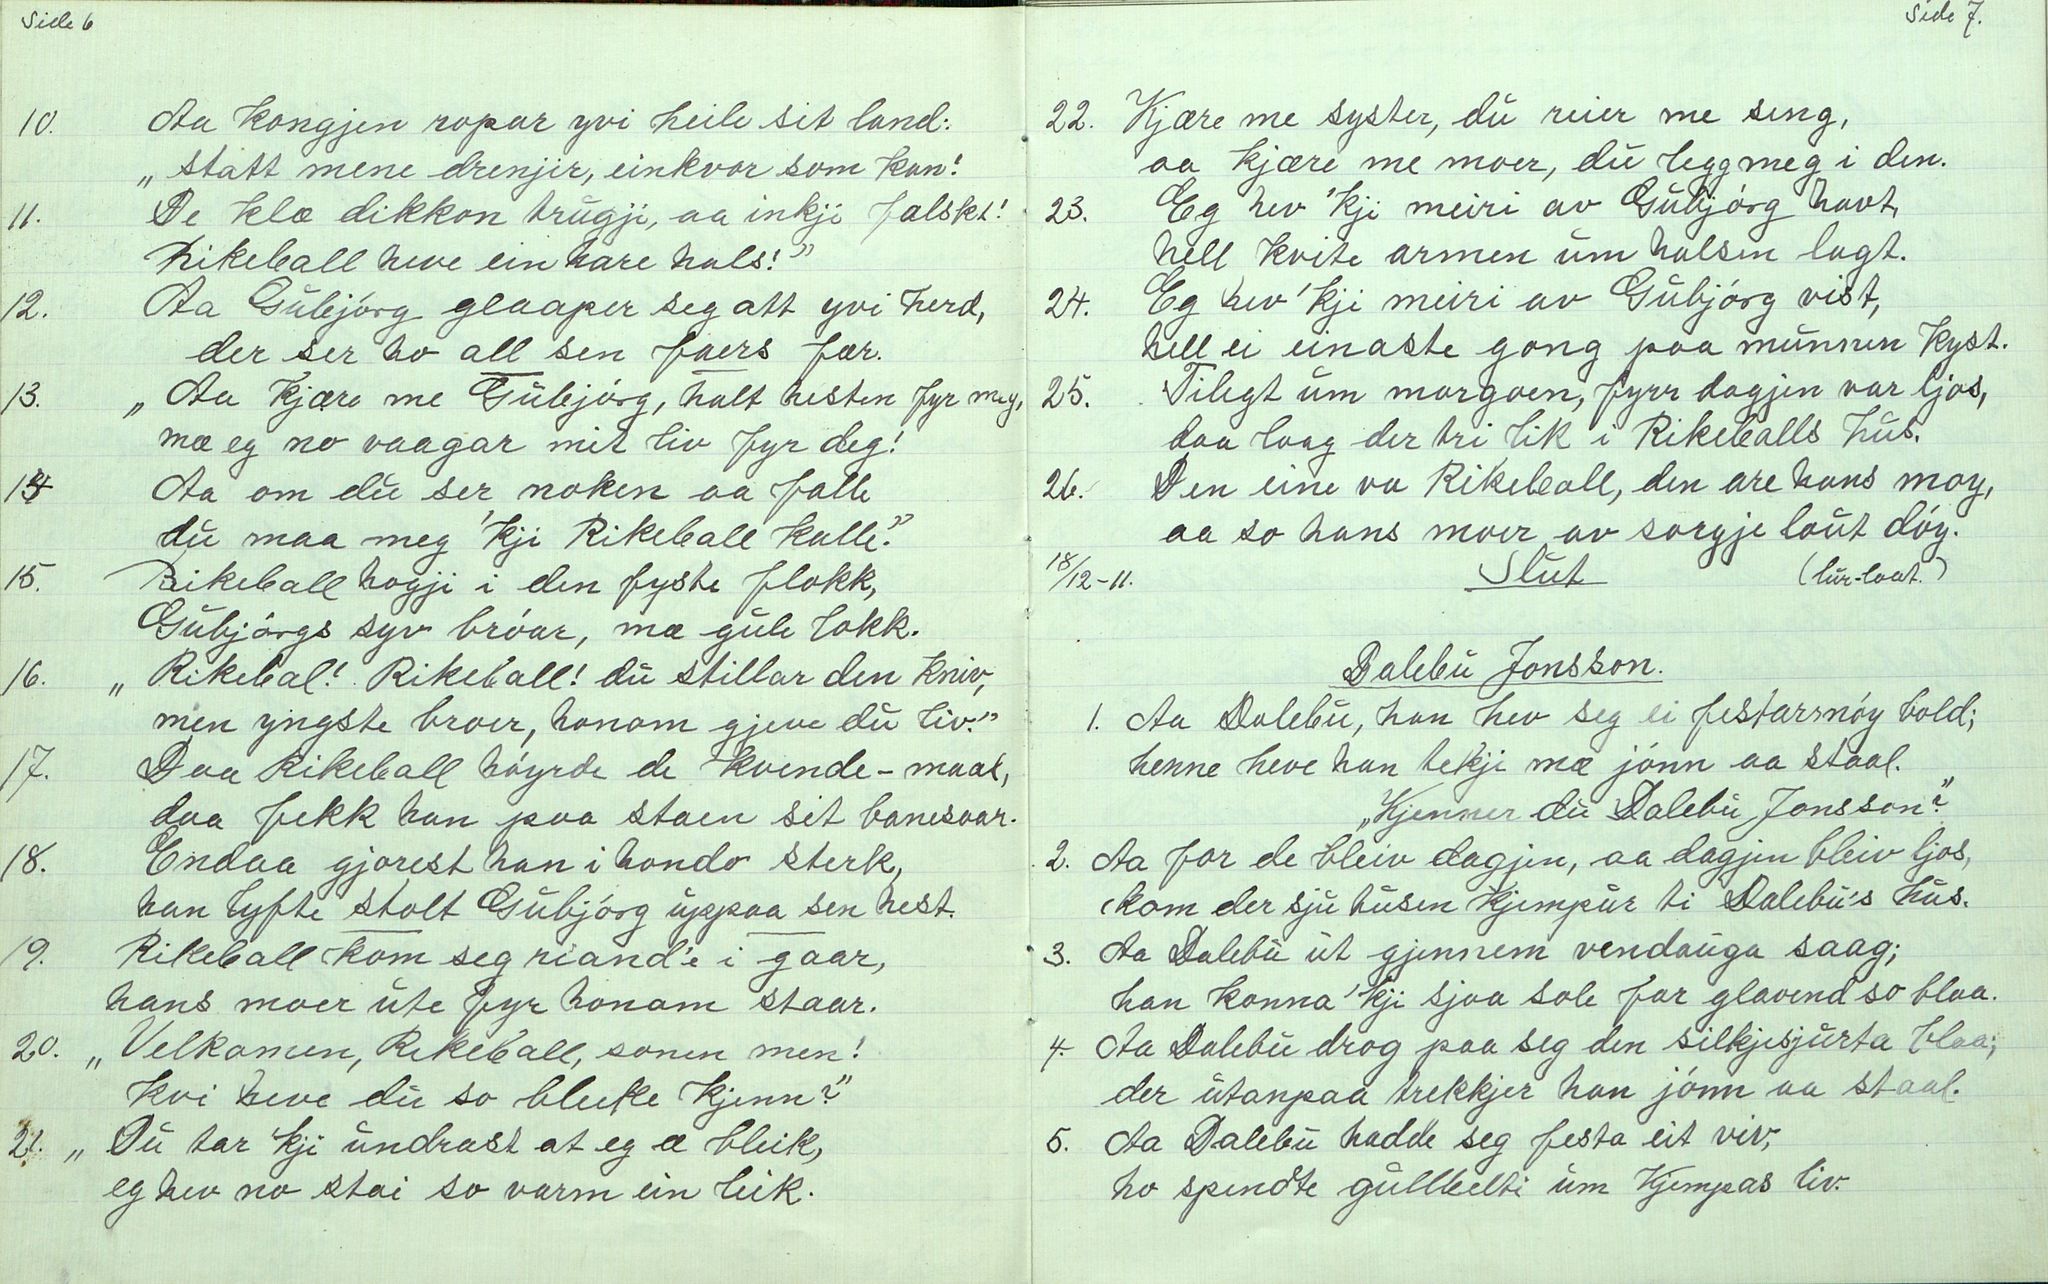 Side 6
10. Aa kongjen ropar yvi heile sit land:
„statt mene drenjir, einkvar som kan!
11. De klæ dikkon trugji, aa inkji falskt!
Rikeball heve ein hare hals!”
12. Aa Gubjórg glaaper seg att yvi herd,
der ser ho all sen faers fær.
13. „Aa kjære me Gubjórg, halt hesten fyr meg,
mæ eg no vaagar mit liv fyr deg!
14 Aa om du ser noken aa falle
du maa meg 'kji Rikeball kalle.”
15. Rikeball hogji i den fyste flokk,
Gubjórgs syv bróar, mæ gule lokk.
16. „Rikebal! Rikeball! du stillar den kniv,
men yngste broer, honom gjeve du liv.”
17. Daa Rikeball hóyrde de kvende-maal,
daa fekk han paa staen sit banesaar.
18. Endaa gjorest han i hondo sterk,
han lyfte stolt Gubjórg uppaa sen hest.
19. Rikeball kom seg riand'e i gaar,
hans moer ute fyr honom staar.
20. „Velkomen, Rikeball, sonen men!
kvi heve du so bleike kjenn?”
21. „Du tar 'kji undrast at eg æ bleik,
eg hev no stai so varm ein leik.
Side 7.
22. Kjære me syster, du reier me seng,
aa kjære me moer, du legg meg i den.
23. Eg hev 'kji meiri av Gubjórg havt,
hell kvite armen um halsen lagt.
24. Eg hev 'kji meiri av Gubjórg vist,
hell ei einaste gong paa munnen kyst.
25. Tilegt um morgoen, fyrr dagjen var ljos,
daa laag der tri lik i Rikeballs hus.
26. Den eine va Rikeball, den are hans moy,
aa so hans moer av sorgje laut dóy.
18/12-11. Slut (lur-laat.)
Dalebu Jonsson.
1. Aa Dalebu, han hev seg ei festarmóy bold;
henne heve han tekji mæ jónn aa staal.
„Kjenner du Dalebu Jonsson?”
2. Aa for de bleiv dagjen, aa dagjen bleiv ljos,
kom der sju tusen kjempur ti Dalebu's hus.
3. Aa Dalebu ut gjennem vendauga saag;
han konna 'kji sjaa sole for glavend so blaa.
4. Aa Dalebu drog paa seg den silkjesjurta blaa;
der utanpaa trekkjer han jónn aa staal.
5. Aa Dalebu hadde seg festa eit viv;
ho spendte gullbelti um Kjempas liv.